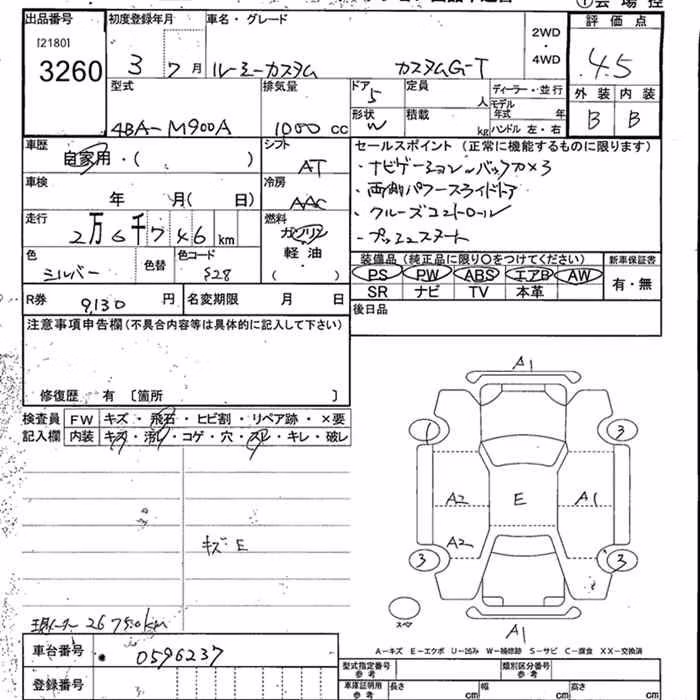 出品番号 初度登録年月 車名・グレード 2WD・4WD 評価点
[2180] 3260 3 7月 ルーミーカスタム カスタムG-T 4.5
型式 排気量 ドア 5 定員 人 ディーラー・並行 外装 内装
4BA-M900A 1000 cc 形状 W 積載 kg モデル年式 年 B B
ハンドル 左・右
車歴 自家用・( ) シフト AT セールスポイント (正常に機能するものに限ります)
・ナビゲーション バックカメラ
車検 年 月( 日) 冷房 AAC ・両側パワースライドドア
走行 2万6千746km 燃料 ガソリン 軽油 ( ) ・クルーズコントロール
・プッシュスタート
色 シルバー 色替 色コード S28 装備品 (純正品に限り○をつけてください) 新車保証書
PS PW ABS エアB AW 有・無
SR ナビ TV 本革
R券 9,130 円 名変期限 月 日 後日品
注意事項申告欄 (不具合内容等は具体的に記入して下さい)
修復歴 有 〔箇所 〕
検査員 FW キズ・飛石・ヒビ割・リペア跡・×要
記入欄 内装 キズ・汚レ・コゲ・穴・スレ・キレ・破レ
A1
3
A2 E A1
A2
3 3
キズ E
スペア
A1
26750km
A-キズ E-エクボ U-凹み W-補修跡 S-サビ C-腐食 XX-交換済
車台番号 0596237
型式指定番号 参考 類別区分番号 参考
登録番号 車庫証明用 参考 長さ cm 幅 cm 高さ cm